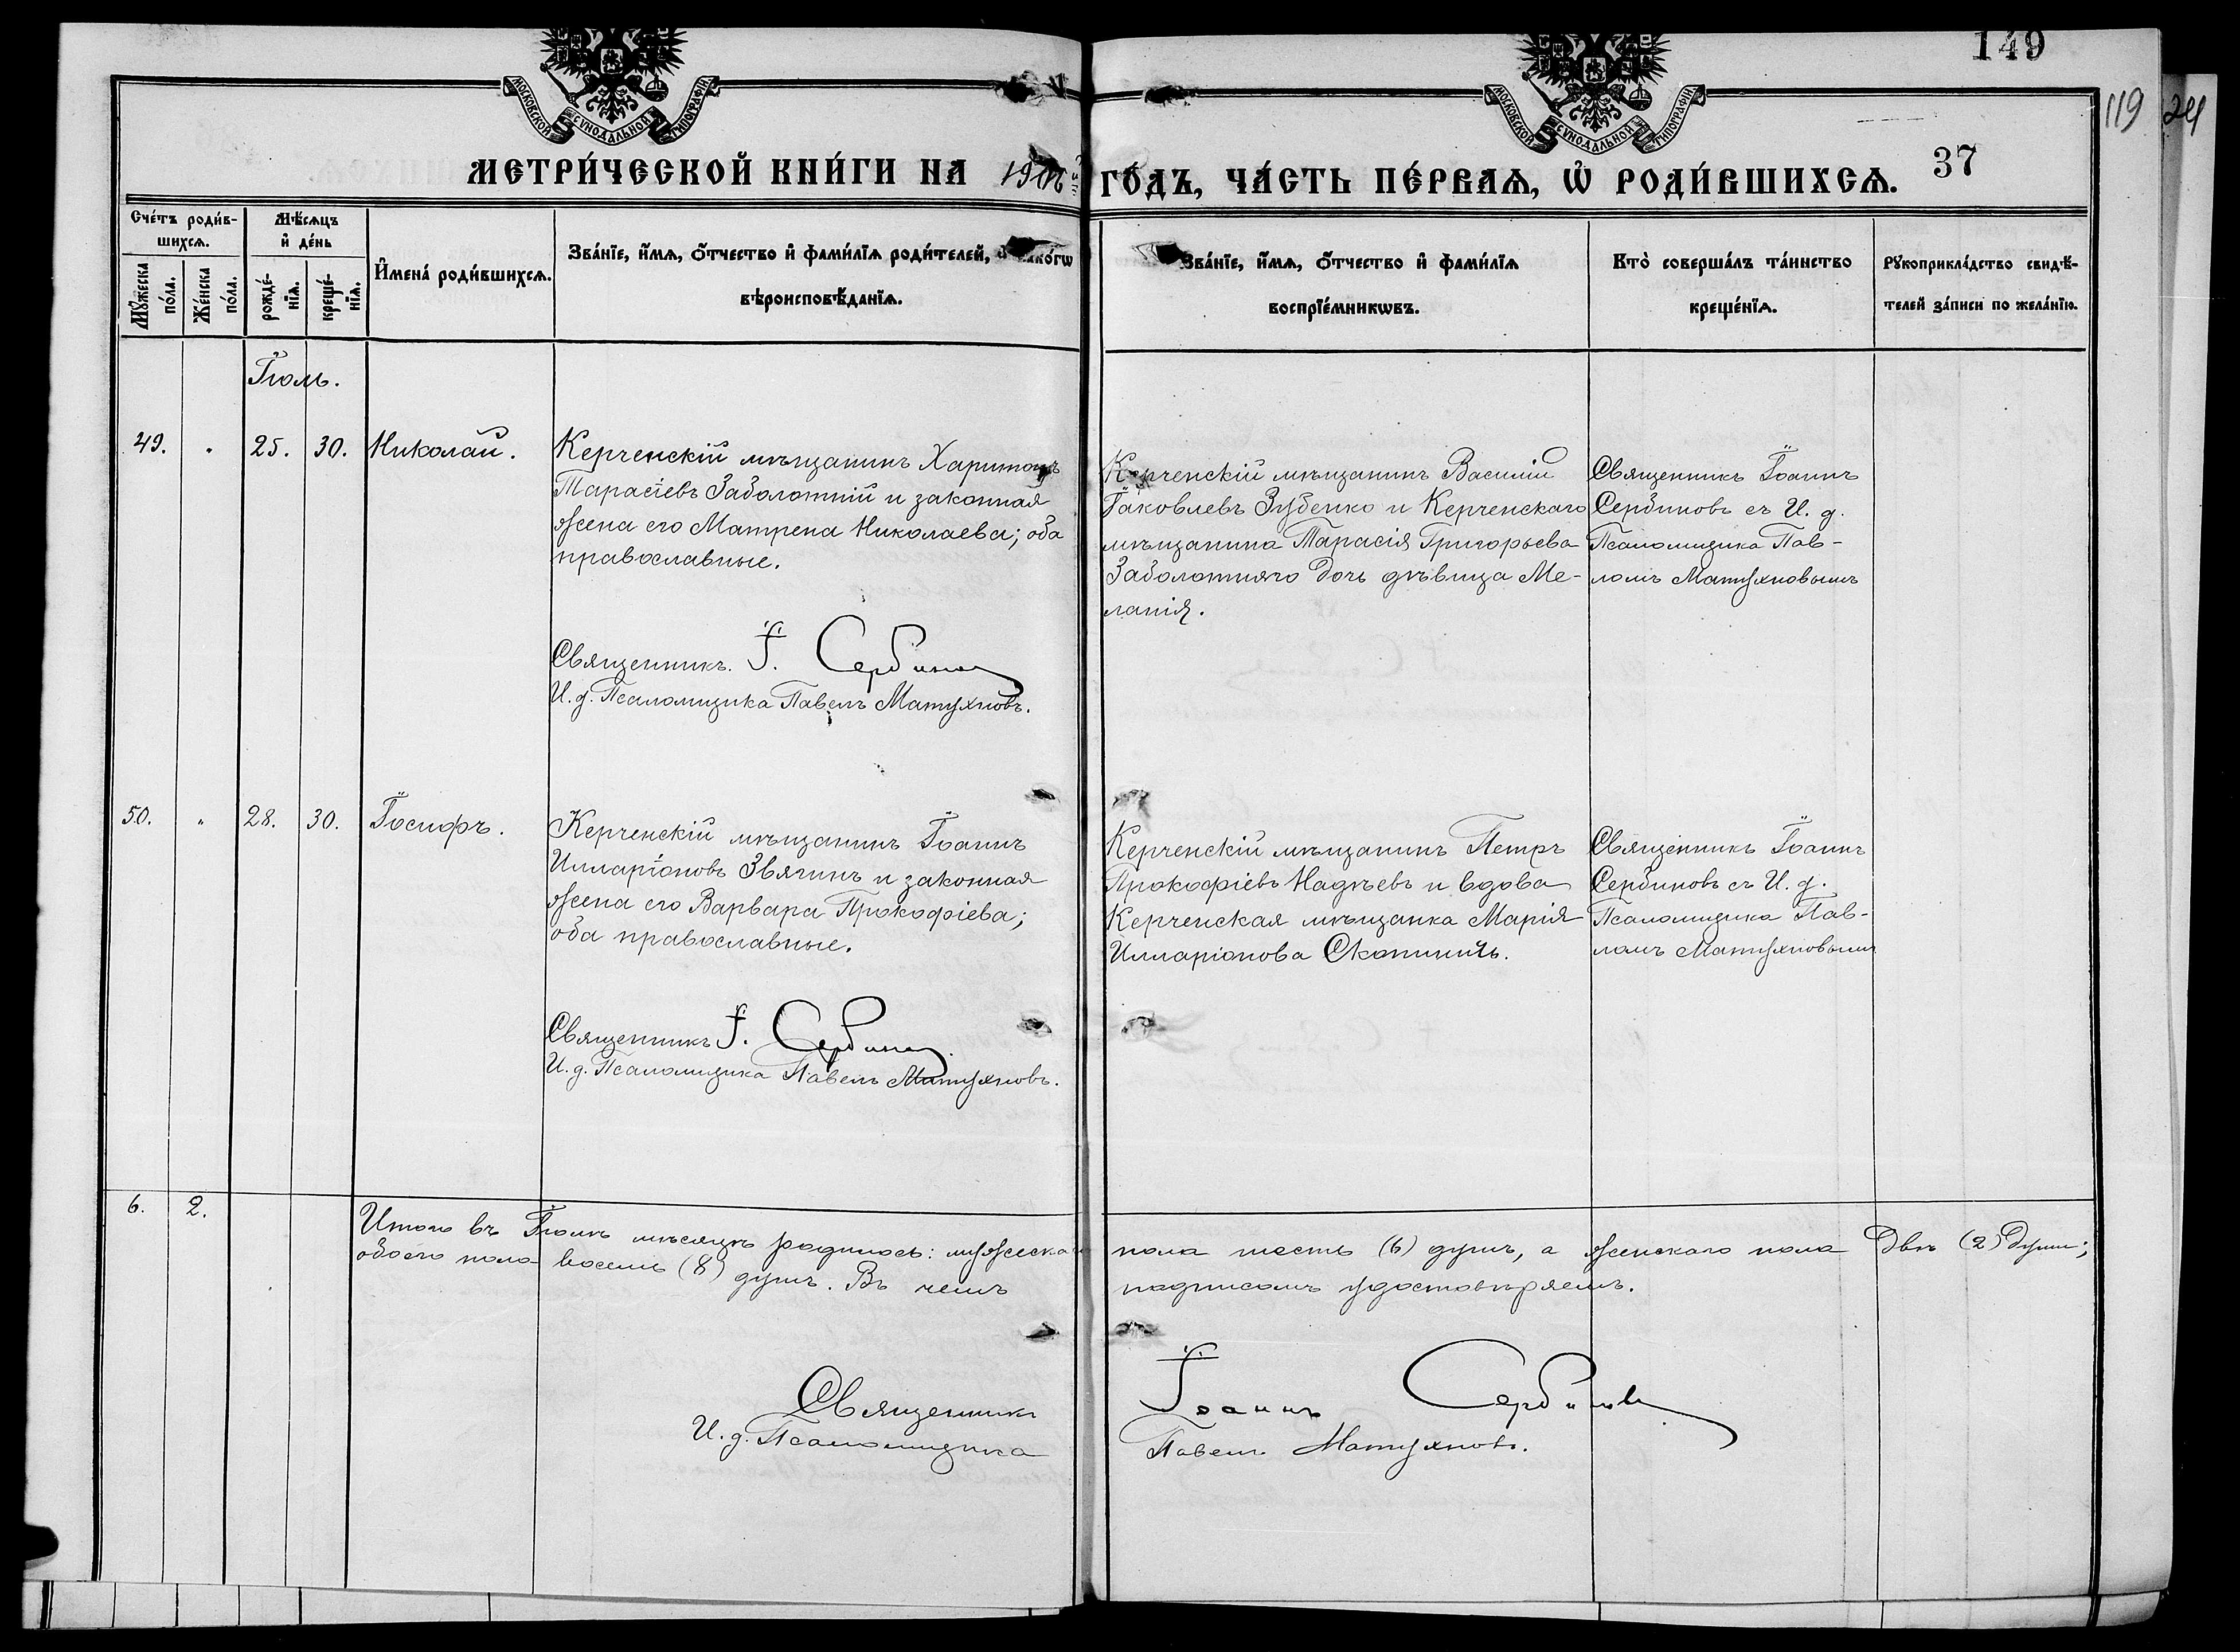 149
119
24
МОСКОВСКОЙ СѴНОДАЛЬНОЙ ТИПОГРАФІИ
МОСКОВСКОЙ СѴНОДАЛЬНОЙ ТИПОГРАФІИ
МЕТРИ́ЧЕСКОЙ КНИ́ГИ НА 1906
ГО́ДЪ, ЧА́СТЬ ПЕ́РВАѦ, Ѡ҆ РОДИ́ВШИХСѦ. 37
Сче́тъ роди́в-
шихсѧ.
Мѣ́сѧцъ
и҆ де́нь
Мꙋ́жеска по́ла.
Же́нска по́ла.
рожде́-
нїѧ.
креще́-
нїѧ.
И҆мена́ роди́вшихсѧ.
Зва́нїе, и҆́мѧ, ѻ҆́тчество и҆ фами́лїѧ роди́телей,
вѣроисповѣ́данїѧ.
Зва́нїе, и҆́мѧ, ѻ҆́тчество и҆ фами́лїѧ
воспрїе́мникѡвъ.
Кто̀ соверша́лъ та́инство
креще́нїѧ.
Рꙋкоприкла́дство свидѣ́-
телей за́писи по жела́нїю.
Іюль.
49. " 25. 30. Николай.
Керченскій мѣщанинъ Харитонъ
Тарасіевъ Заболотній и законная
жена его Матрена Николаева; оба
православные.
Священникъ І. Сербиновъ
И. д. Псаломщика Павелъ Матухновъ.
Керченскій мѣщанинъ Василій
Іаковлевъ Зубенко и Керченскаго
мѣщанина Тарасія Григорьева
Заболотняго дочь дѣвица Ме-
ланія.
Священникъ Іоаннъ
Сербиновъ съ И. д.
Псаломщика Пав-
ломъ Матухновымъ
50. " 28. 30. Іосифъ.
Керченскій мѣщанинъ Іоаннъ
Илларіоновъ Звягинъ и законная
жена его Варвара Прокофіева;
оба православные.
Священникъ І. Сербиновъ
И. д. Псаломщика Павелъ Матухновъ.
Керченскій мѣщанинъ Петръ
Прокофіевъ Надѣевъ и вдова
Керченская мѣщанка Марія
Илларіонова
Священникъ Іоаннъ
Сербиновъ съ И. д.
Псаломщика Пав-
ломъ Матухновымъ
6. 2.
Итого въ Іюлѣ мѣсяцѣ родилось: мужеска пола шесть (6) душъ, а женскаго пола двѣ (2) души;
обоего пола восемь (8) душъ. Въ чемъ подписомъ удостовѣряемъ.
Священникъ Іоаннъ Сербиновъ
И. д. Псаломщика Павелъ Матухновъ.